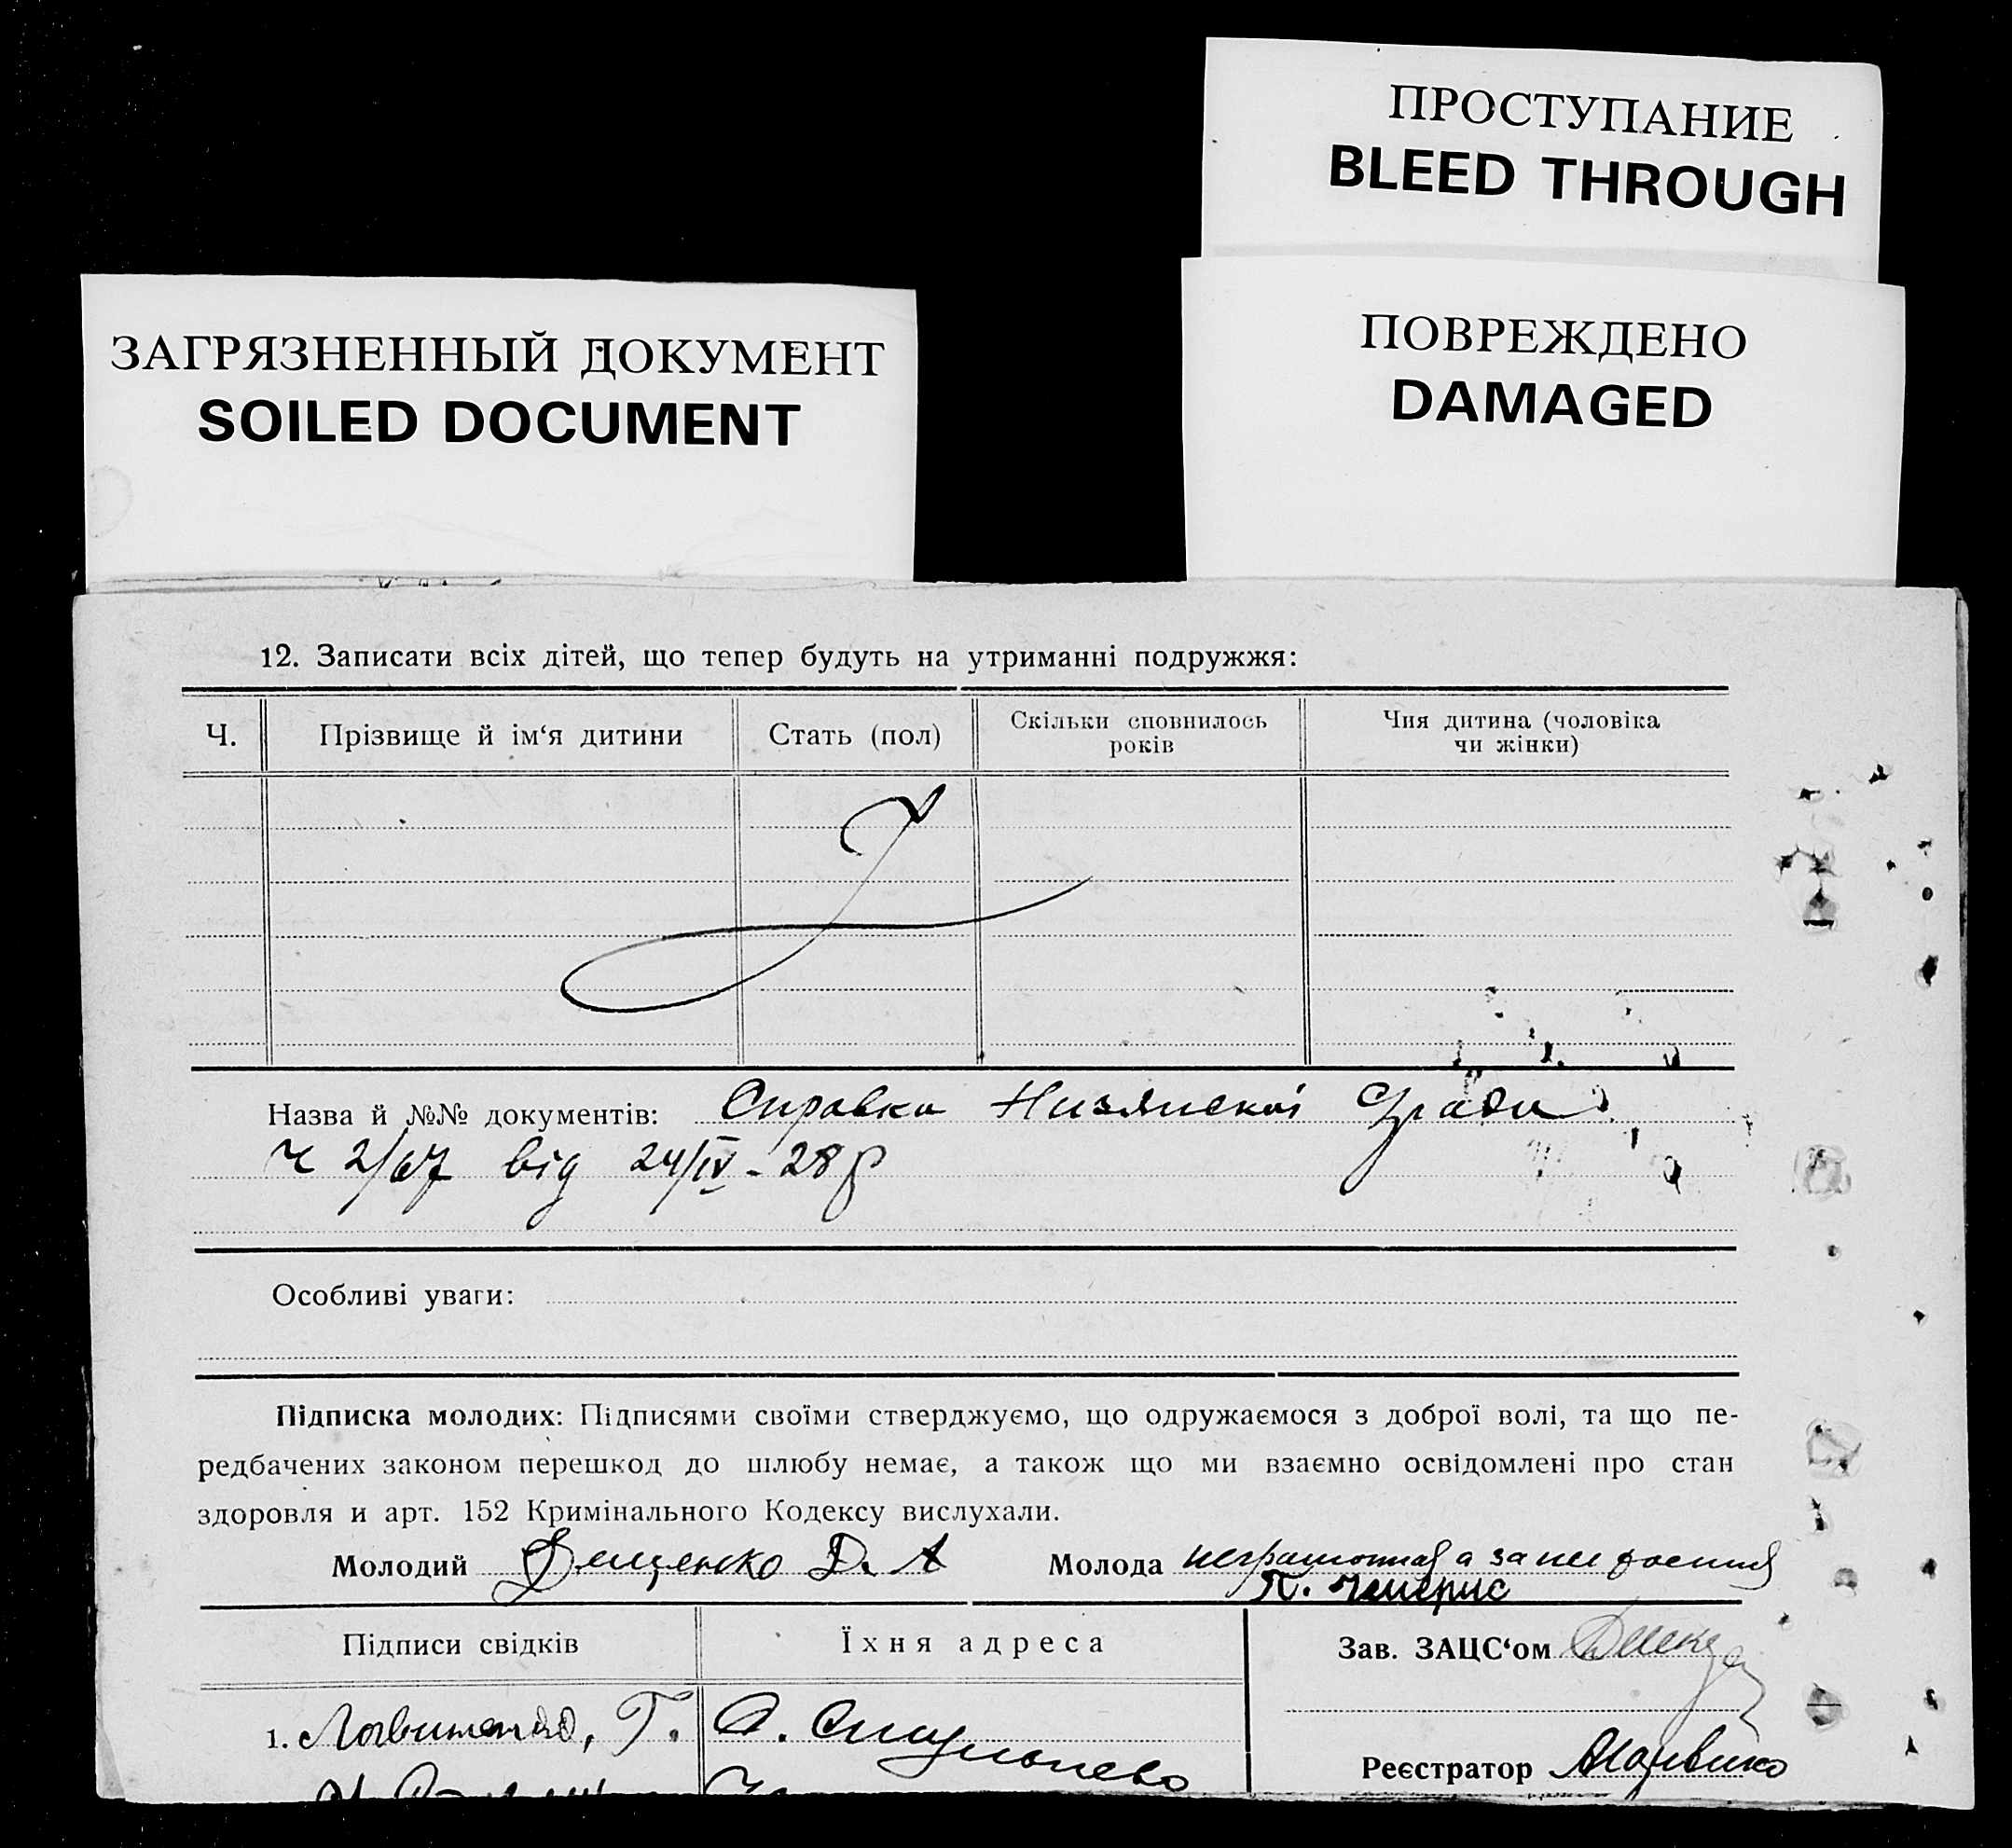 ПРОСТУПАНИЕ
BLEED THROUGH
ЗАГРЯЗНЕННЫЙ ДОКУМЕНТ
SOILED DOCUMENT
ПОВРЕЖДЕНО
DAMAGED
12. Записати всіх дітей, що тепер будуть на утриманні подружжя:
Ч. Прізвище й ім‘я дитини Стать (пол) Скільки сповнилось років Чия дитина (чоловіка чи жінки)
Назва й №№ документів: Справка Низянської С/ради
ч 2/67 від 24/IV - 28 р
Особливі уваги:
Підписка молодих: Підписями своїми стверджуємо, що одружаємося з доброї волі, та що пе-
редбачених законом перешкод до шлюбу немає, а також що ми взаємно освідомлені про стан
здоровля и арт. 152 Кримінального Кодексу вислухали.
Молодий Дещенко Д. А Молода неграмотная а за нее
П. Чемерис
Підписи свідків Їхня адреса Зав. ЗАЦС‘ом
1. Логвиненко, Г. С.
Реєстратор